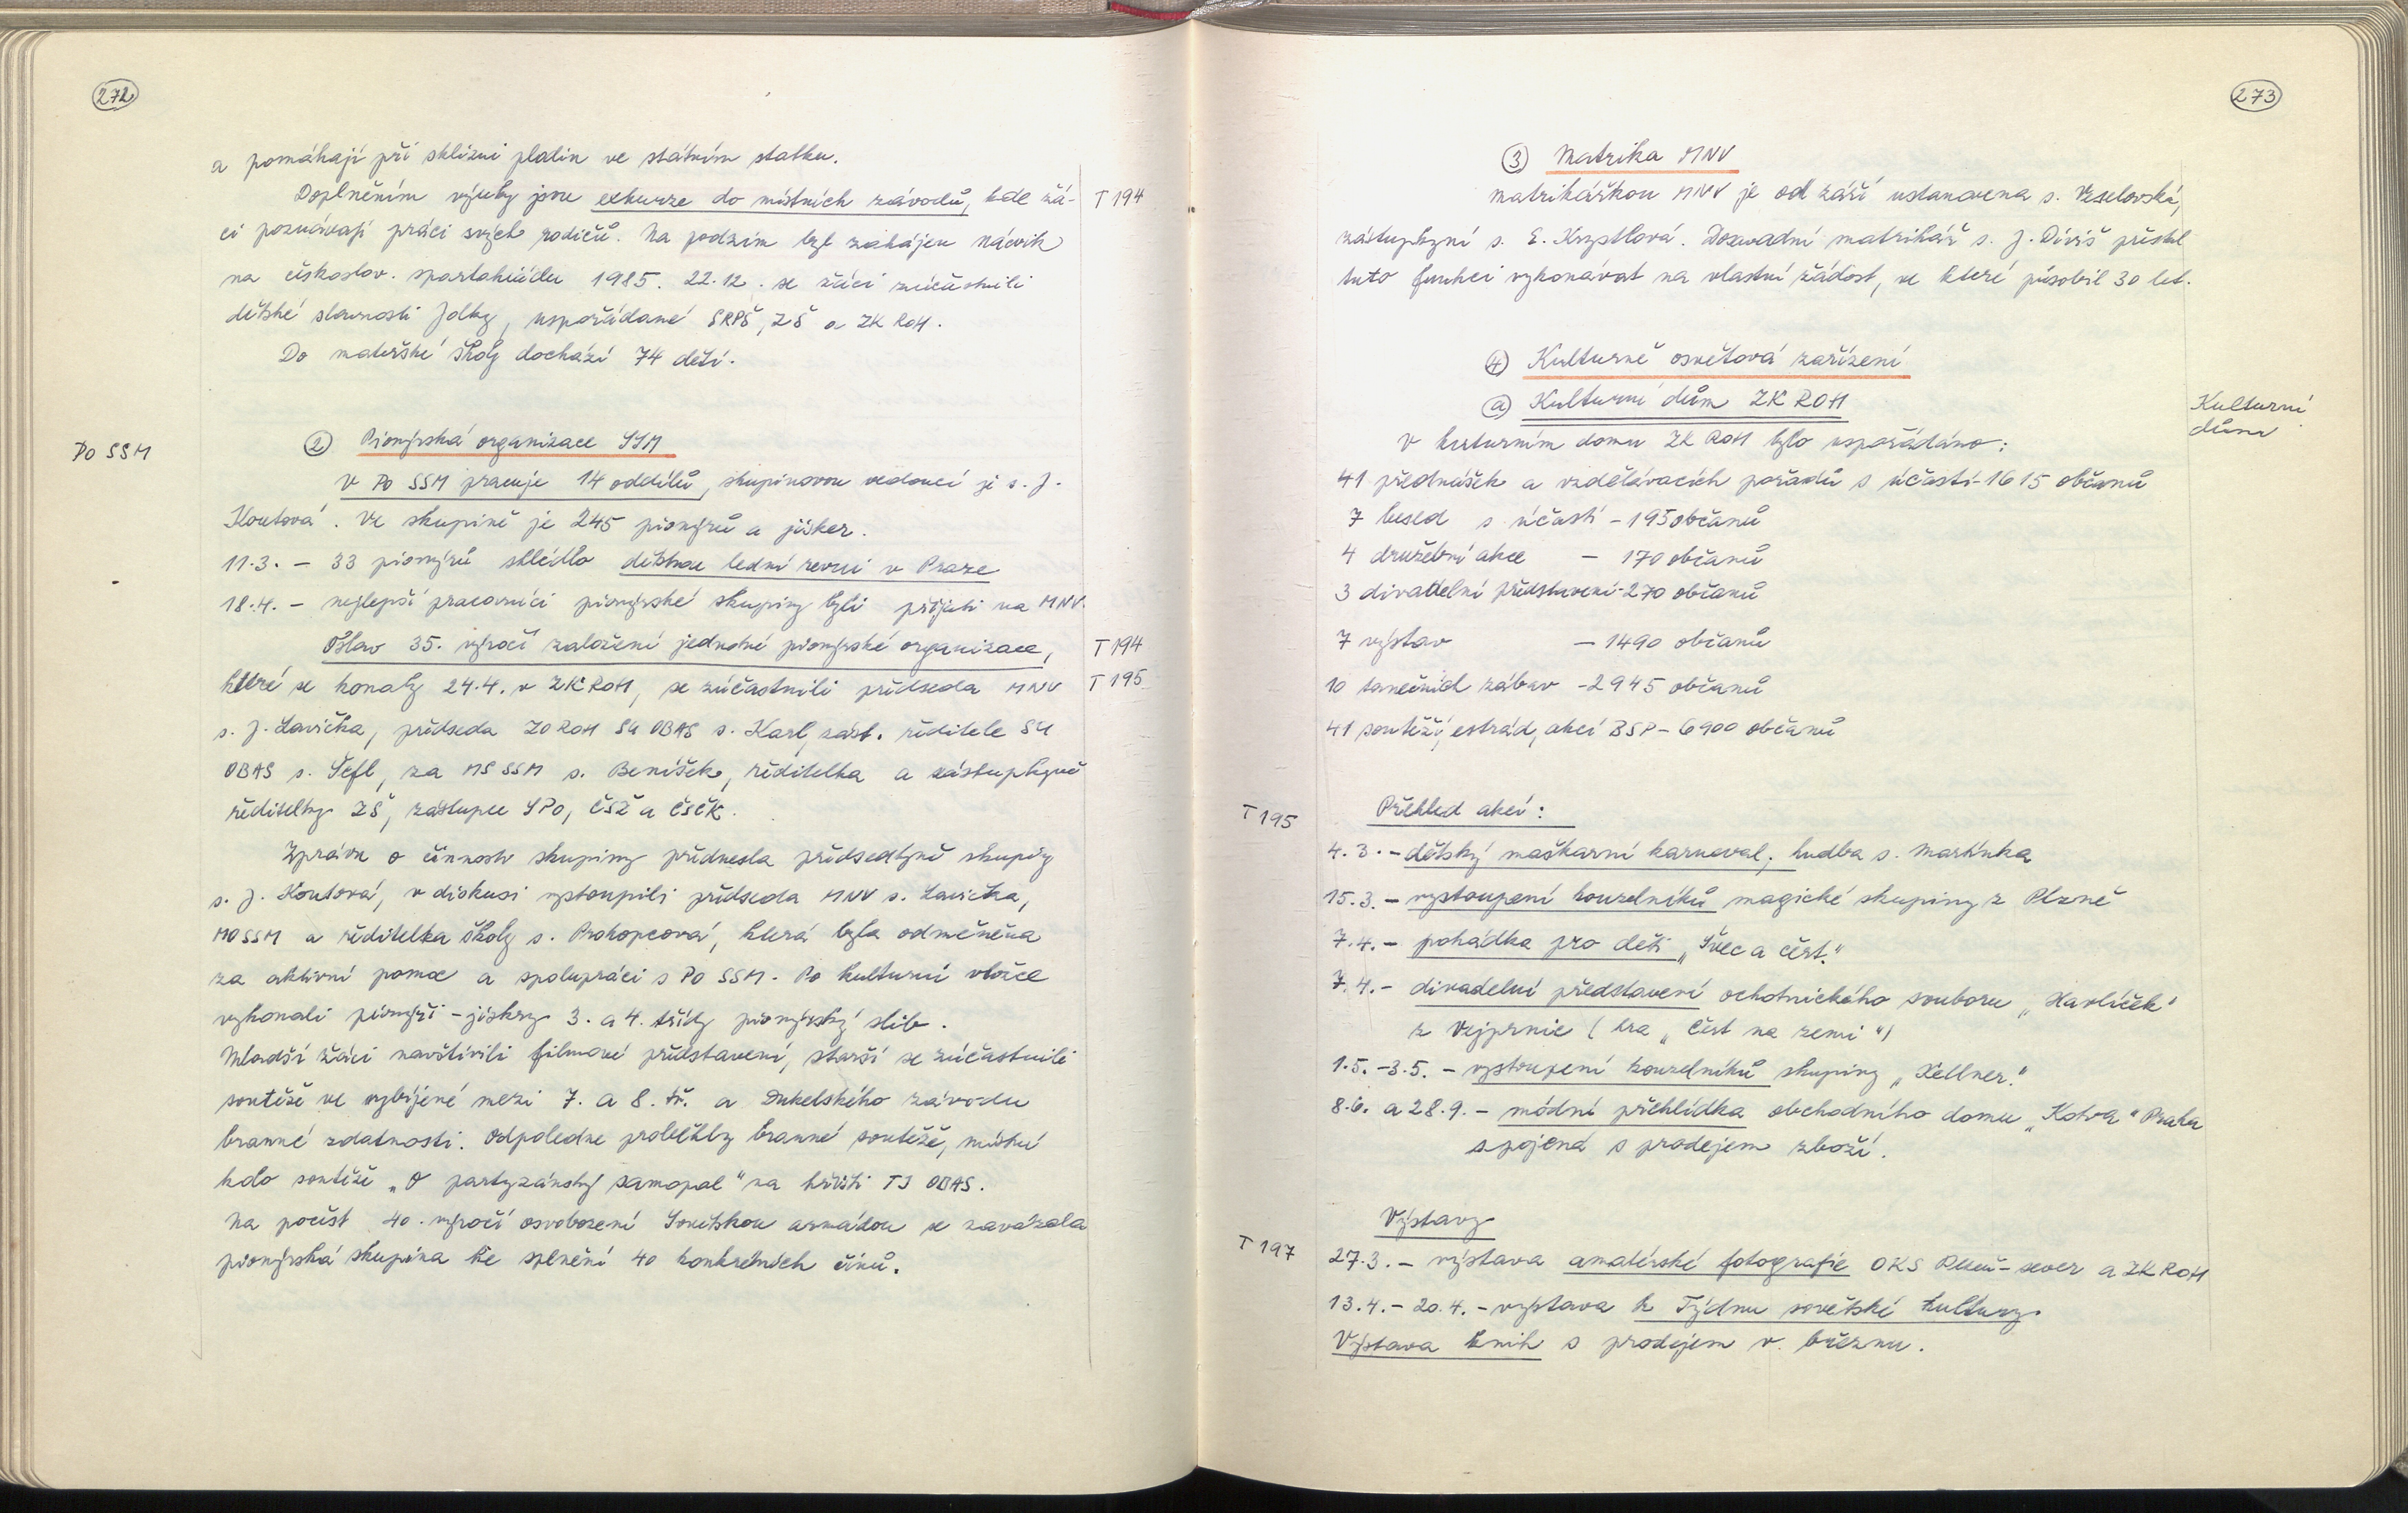 272
a pomáhají při sklizni plodin ve státním statku.
Doplněním výuky jsou exkurze do místních závodů, kde žá-
T 194
ci poznávají práci svých rodičů. Na podzim byl zahájen nácvik
na českoslov. spartakiádu 1985. 22.12. se žáci zúčastnili
dětské slavnosti Jolky, uspořádané SRPŠ, ZŠ a ZK ROH.
Do mateřské školy dochází 74 dětí.
PO SSM
② Pionýrská organizace SSM
V PO SSM pracuje 14 oddílů, skupinovou vedoucí je s. J.
Koutová. Ve skupině je 245 pionýrů a jisker.
11.3. – 33 pionýrů shlédlo dětskou lední revui v Praze
18.4. – nejlepší pracovníci pionýrské skupiny byli přijati na MNV.
Oslav 35. výročí založení jednotné pionýrské organizace,
T 194
které se konaly 24.4. v ZK ROH, se zúčastnili předseda MNV
T 195
s. J. Lavička, předseda ZO ROH SÚ OBAS s. Karl, zást. ředitele SÚ
OBAS s. Šefl, za MS SSM s. Benišek, ředitelka a zástupkyně
ředitelky ZŠ, zástupce SPO, ČSŽ a ČSČK.
Zprávu o činnosti skupiny přednesla předsedkyně skupiny
s. J. Koutová, v diskusi vystoupili předseda MNV s. Lavička,
MO SSM a ředitelka školy s. Prokopcová, která byla odměněna
za aktivní pomoc a spolupráci s PO SSM. Po kulturní vložce
vykonali pionýři – jiskry 3. a 4. třídy pionýrský slib.
Mladší žáci navštívili filmové představení, starší se zúčastnili
soutěže ve vybíjené mezi 7. a 8. tř. a Dukelského závodu
branné zdatnosti. Odpoledne proběhly branné soutěže, místní
kolo soutěže „O partyzánský samopal“ na hřišti TJ OBAS.
Na počest 40. výročí osvobození Sovětskou armádou se zavázala
pionýrská skupina ke splnění 40 konkrétních činů.
273
③ Matrika MNV
Matrikářkou MNV je od září ustanovena s. Veselovská,
zástupkyní s. E. Kryštlová. Dosavadní matrikář s. J. Diviš přestal
tuto funkci vykonávat na vlastní žádost, ve které působil 30 let.
④ Kulturně osvětová zařízení
ⓐ Kulturní dům ZK ROH
Kulturní
dům
V kulturním domu ZK ROH bylo uspořádáno:
41 přednášek a vzdělávacích pořadů s účastí – 1615 občanů
7 besed s účastí – 195 občanů
4 družební akce – 170 občanů
3 divadelní představení – 270 občanů
7 výstav – 1490 občanů
10 tanečních zábav – 2945 občanů
41 soutěží, estrád, akcí BSP – 6900 občanů
T 195
Přehled akcí:
4.3. – dětský maškarní karneval, hudba s. Martínka
15.3. – vystoupení kouzelníků magické skupiny z Plzně
7.4. – pohádka pro děti „Švec a čert.“
7.4. – divadelní představení ochotnického souboru „Havlíček“
z Vejprnic (hra „Čert na zemi“)
1.5. – 3.5. – vystoupení kouzelníků skupiny „Kellner.“
8.6. a 28.9. – módní přehlídka obchodního domu „Kotva“ Praha
spojená s prodejem zboží.
Výstavy
T 197
27.3. – výstava amatérské fotografie OKS Plzeň – sever a ZK ROH
13.4. – 20.4. – výstava k Týdnu sovětské kultury.
Výstava knih s prodejem v březnu.